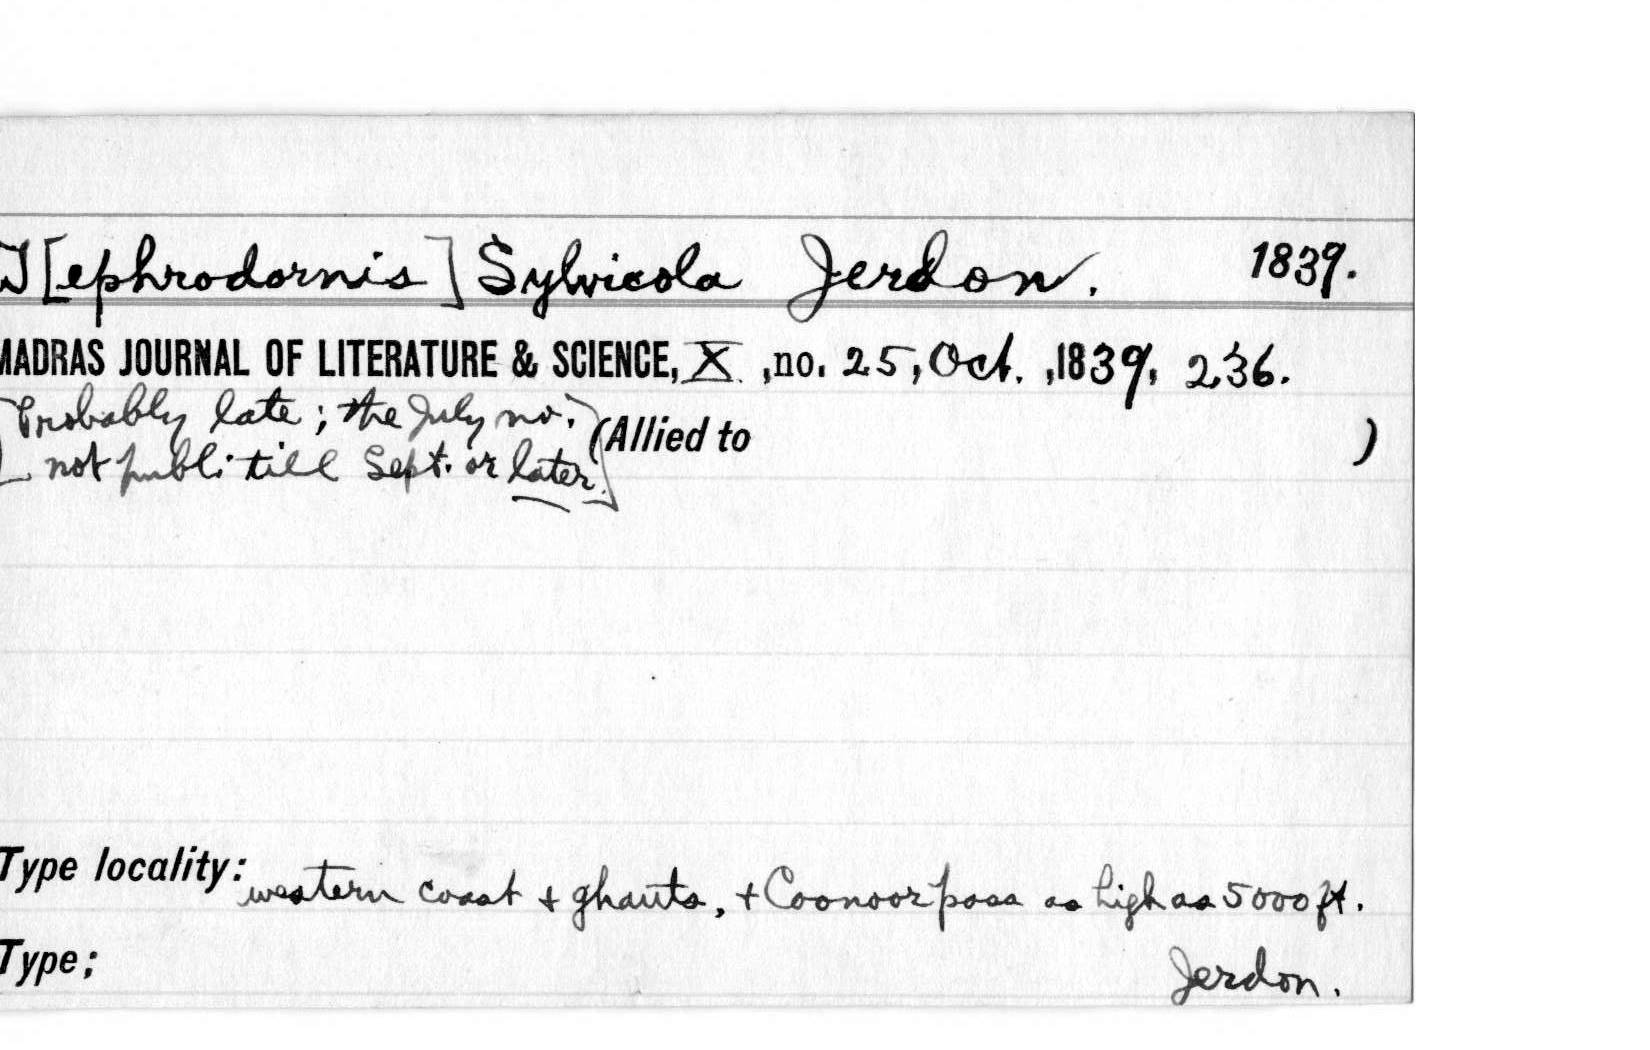 T[ephrodornis] Sylvicola Jerdon. 1839.
MADRAS JOURNAL OF LITERATURE & SCIENCE, X. ,no. 25, Oct. ,1839, 236.
[Probably late; the July no.
not publ. till Sept. or later.] (Allied to )
Type locality: western coast + ghauts, + Coonoor pass as high as 5000 ft.
Type; Jerdon.